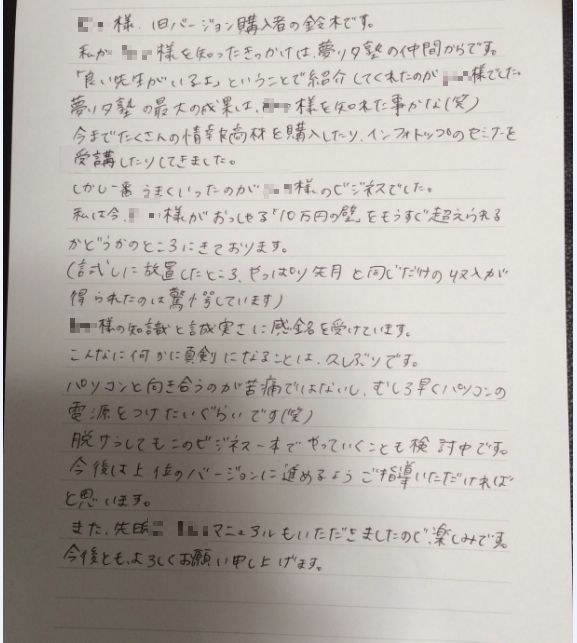 様、旧バージョン購入者の鈴木です。
私が 様を知ったきっかけは、夢リタ塾の仲間からです。
「良い先生がいるよ」ということで紹介してくれたのが 様でした。
夢リタ塾の最大の成果は、 様を知れた事かな(笑)
今までたくさんの情報商材を購入したり、インフォトップのセミナーを
受講したりしてきました。
しかし一番うまくいったのが 様のビジネスでした。
私は今、 様がおっしゃる「10万円の壁」をもうすぐ超えられる
かどうかのところにきております。
(試しに放置したところ、やっぱり先月と同じだけの収入が
得られたのは驚愕しています)
様の知識と誠実さに感銘を受けています。
こんなに何かに真剣になることは、久しぶりです。
パソコンと向き合うのが苦痛ではないし、むしろ早くパソコンの
電源をつけたいぐらいです(笑)
脱サラしてもこのビジネス一本でやっていくことも検討中です。
今後は上位のバージョンに進めるようご指導いただければ
と思います。
また、先日 マニュアルもいただきましたので、楽しみです。
今後とも、よろしくお願い申し上げます。